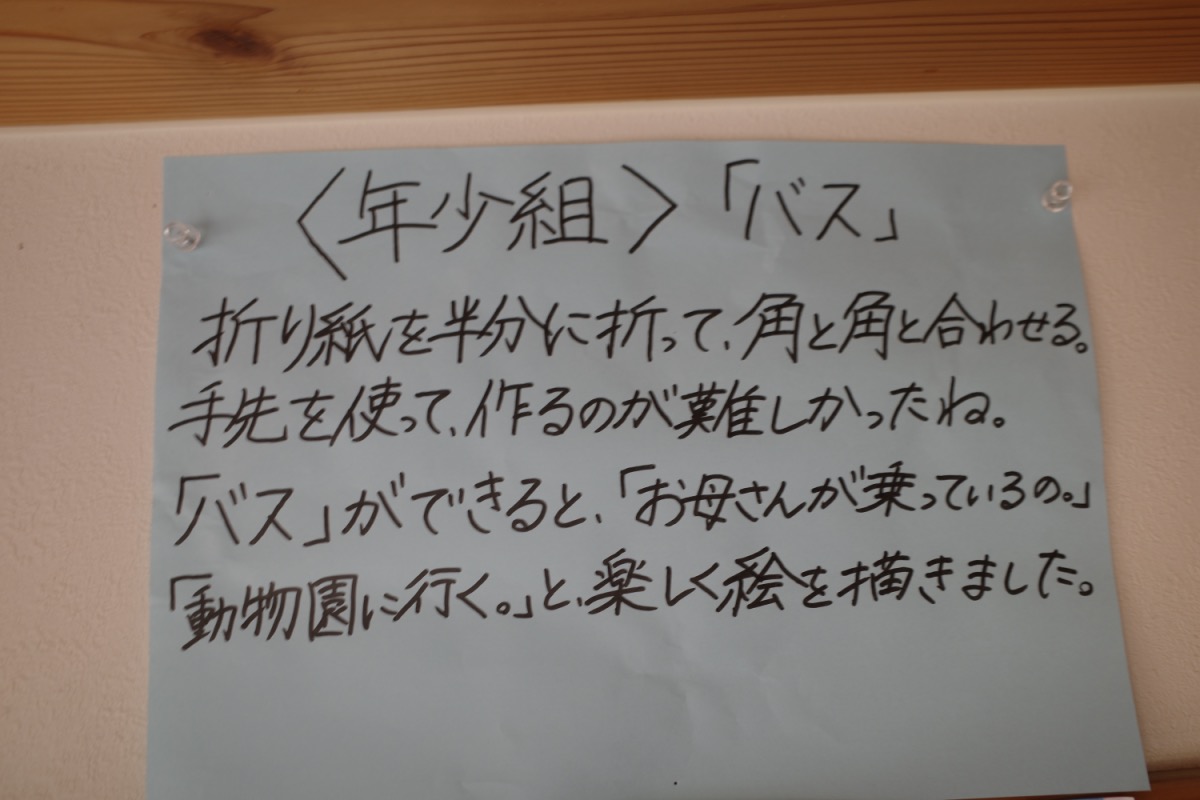 〈年少組〉「バス」
折り紙を半分に折って、角と角と合わせる。
手先を使って、作るのが難しかったね。
「バス」ができると、「お母さんが乗っているの。」
「動物園に行く。」と、楽しく絵を描きました。